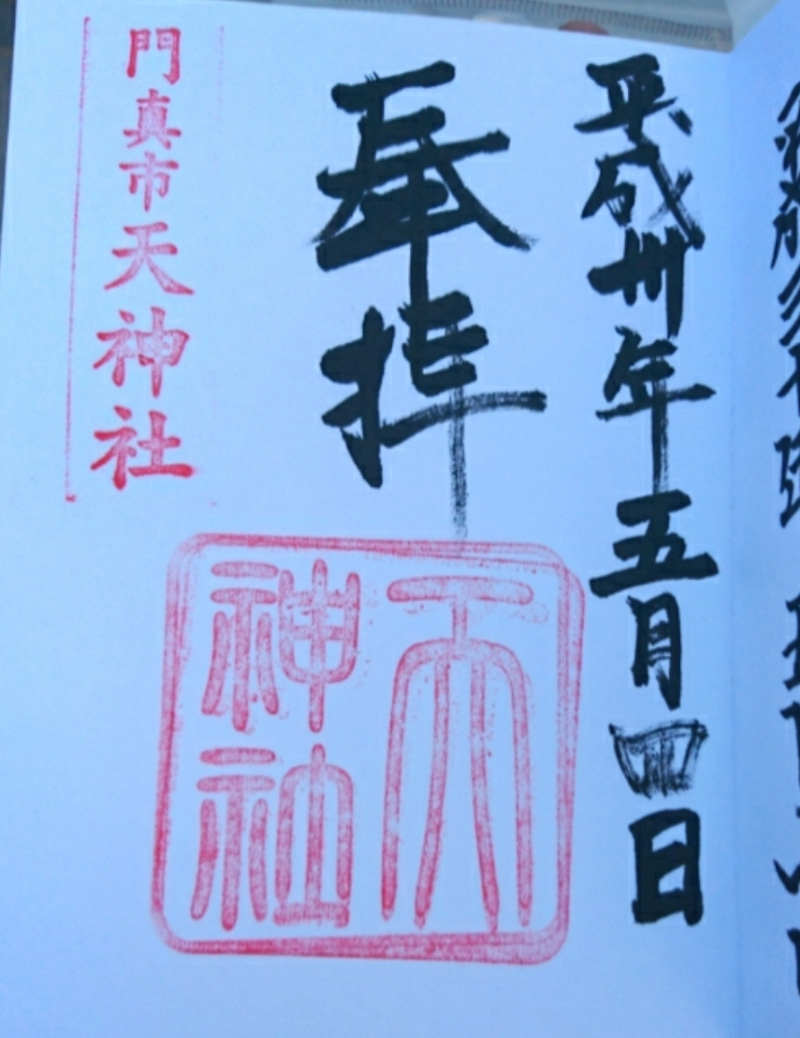 平成卅年五月四日
奉拝
天神社
門真市天神社